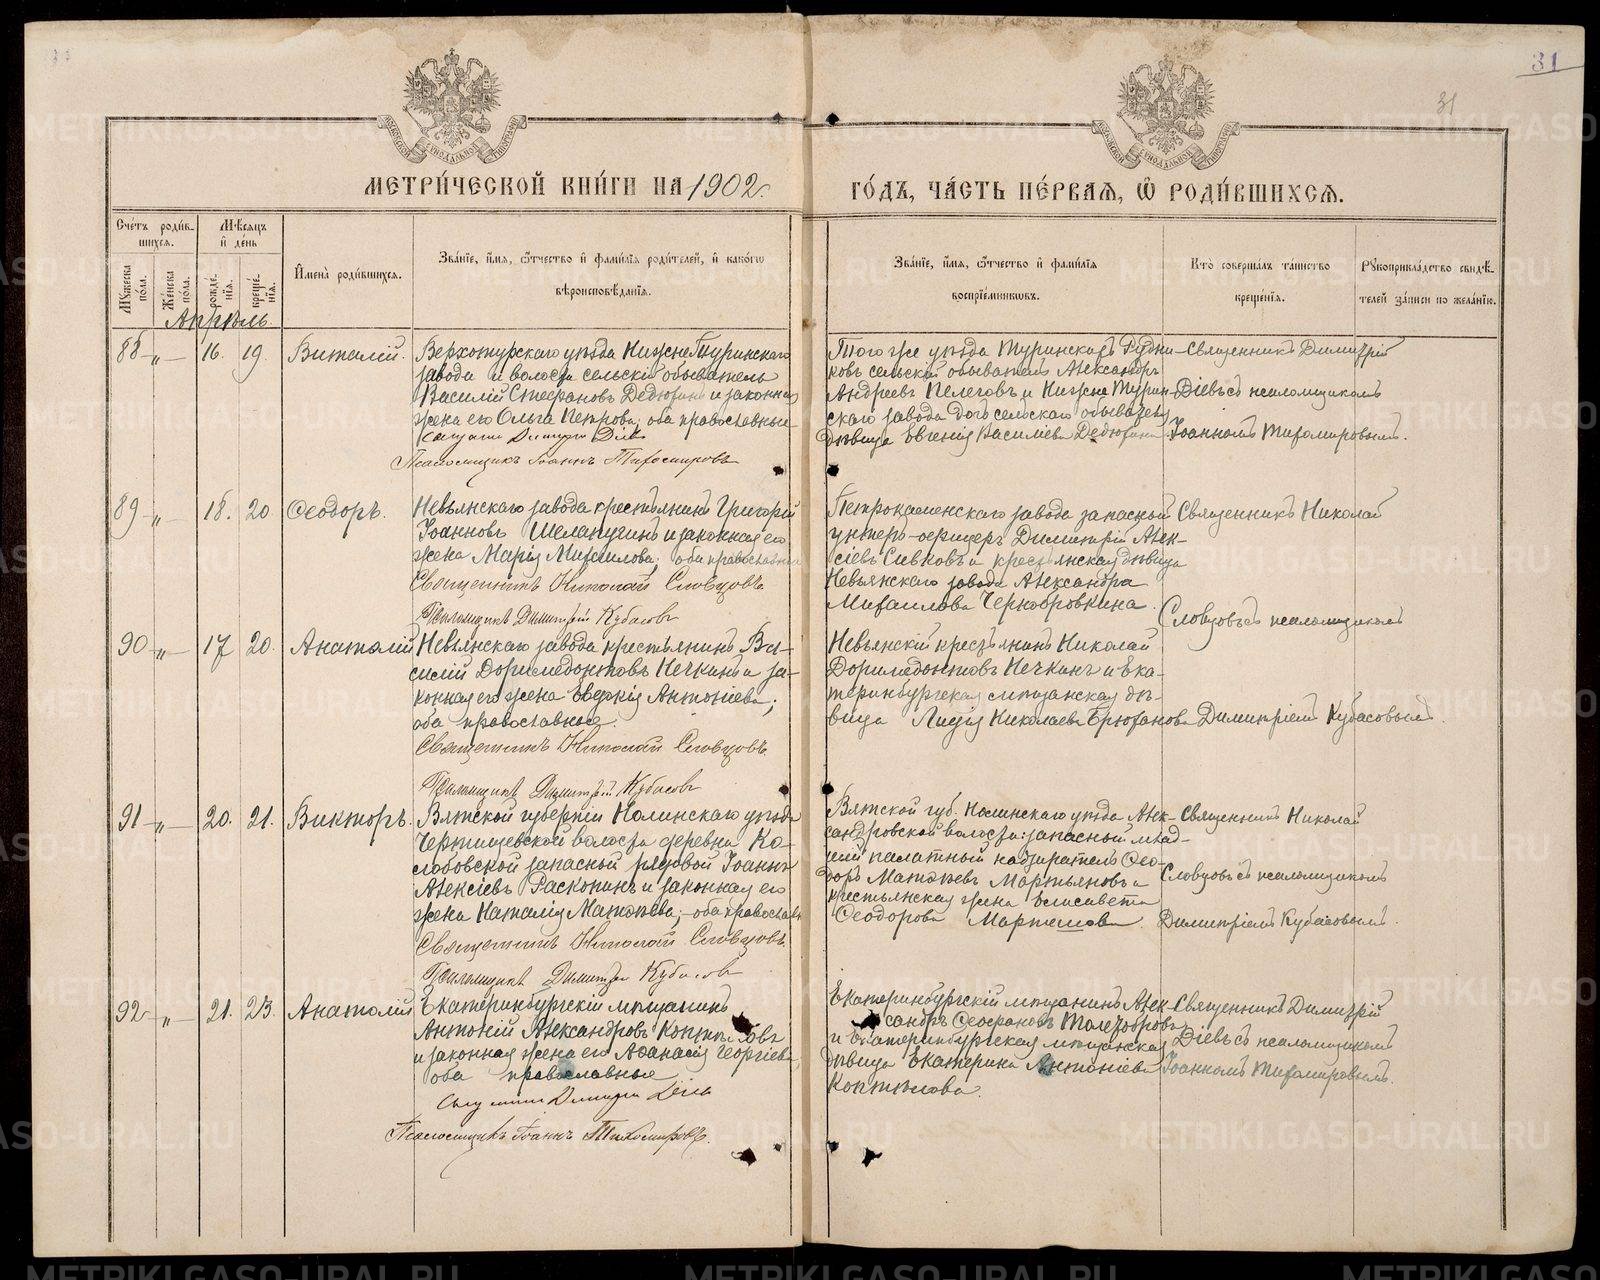 31
31
МОСКОВСКОЙ СѴНОДАЛЬНОЙ ТИПОГРАФІИ
МОСКОВСКОЙ СѴНОДАЛЬНОЙ ТИПОГРАФІИ
МЕТРИ́ЧЕСКОЙ КНИ́ГИ НА 1902 г.
ГО́ДЪ, ЧА́СТЬ ПЕ́РВАЯ, Ѡ РОДИ́ВШИХСЯ.
Счетъ родив-
шихся.
Мѣсяцъ
и день
Мужеска
пола.
Женска
пола.
рожде-
нія.
креще-
нія.
Имена родившихся.
Званіе, имя, отчество и фамилія родителей, и какого
вѣроисповѣданія.
Званіе, имя, отчество и фамилія
воспріемниковъ.
Кто совершалъ таинство
крещенія.
Рукоприкладство свидѣ-
телей записи по желанію.
Апрѣль.
88 „ 16. 19 Виталій.
Верхотурскаго уѣзда Нижне Туринскаго
завода и волости сельскій обыватель
Василій Стефановъ Дедюхинъ и законная
жена его Ольга Петрова; оба православные
Священникъ Димитрій Діевъ
Псаломщикъ Іоаннъ Тихомировъ
Того же уѣзда Туринскихъ Рудни-
ковъ сельскій обыватель Александръ
Андреевъ Пелеговъ и Нижне Турин-
скаго завода дочь сельскаго обывателя
дѣвица Евгенія Василіева Дедюхина
Священникъ Димитрій
Діевъ съ псаломщикомъ
Іоанномъ Тихомировымъ.
89 „ 18. 20 Ѳеодоръ.
Невьянскаго завода крестьянинъ Григорій
Іоанновъ Шелапугинъ и законная его
жена Марія Михаилова; оба православные
Священникъ Николай Словцовъ
Псаломщикъ Димитрій Кубасовъ
Петрокаменскаго завода запасной
унтеръ-офицеръ Димитрій Алек-
сіевъ Сивковъ и крестьянская дѣвица
Невьянскаго завода Александра
Михаилова Чернобровкина.
Священникъ Николай
Словцовъ съ псаломщикомъ
90 „ 17 20. Анатолій
Невьянскаго завода крестьянинъ Ва-
силій Доримедонтовъ Нечкинъ и за-
конная его жена Евдокія Антоніева;
оба православные.
Священникъ Николай Словцовъ
Псаломщикъ Димитрій Кубасовъ
Невьянскій крестьянинъ Николай
Доримедонтовъ Нечкинъ и Ека-
теринбургская мѣщанская дѣ-
вица Лидія Николаева Брюханова
Димитріемъ Кубасовымъ.
91 „ 20. 21. Викторъ.
Вятской губерніи Нолинскаго уѣзда
Чертищевской волости деревни Ко-
словской запасной рядовой Іоаннъ
Алексіевъ Раскопинъ и законная его
жена Наталія Матѳіева; оба православн
Священникъ Николай Словцовъ
Псаломщикъ Димитрій Кубасовъ
Вятской губ. Нолинскаго уѣзда Алек-
сандровской волости запасной млад-
шій палатный надзиратель Ѳео-
доръ Матѳіевъ Мартьяновъ и
крестьянская жена Елисавета
Ѳеодорова Мартешова.
Священникъ Николай
Словцовъ съ псаломщикомъ
Димитріемъ Кубасовымъ.
92 „ 21. 23. Анатолій
Екатеринбургскій мѣщанинъ
Антоній Александровъ Коптѣловъ
и законная жена его Аѳанасія Георгіева
оба православные
Священникъ Димитрій Діевъ
Псаломщикъ Іоаннъ Тихомировъ.
Екатеринбургскій мѣщанинъ Алек-
сандръ Ѳеофановъ
и Екатеринбургская мѣщанская
дѣвица Екатерина Антоніева
Коптѣлова.
Священникъ Димитрій
Діевъ съ псаломщикомъ
Іоанномъ Тихомировымъ.
METRIKI.GASO-URAL.RU